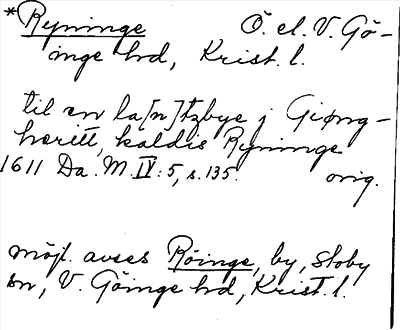 *Ryninge Ö. el. V. Gö-
inge hd, Krist. l.
til en la[n]tzbye j Giøng-
heritt, kaldis Ryninge
1611 Da. M. IV:5, s. 135. orig.
möjl. avses Röinge, by, Stoby
sn, V. Göinge hd, Krist. l.